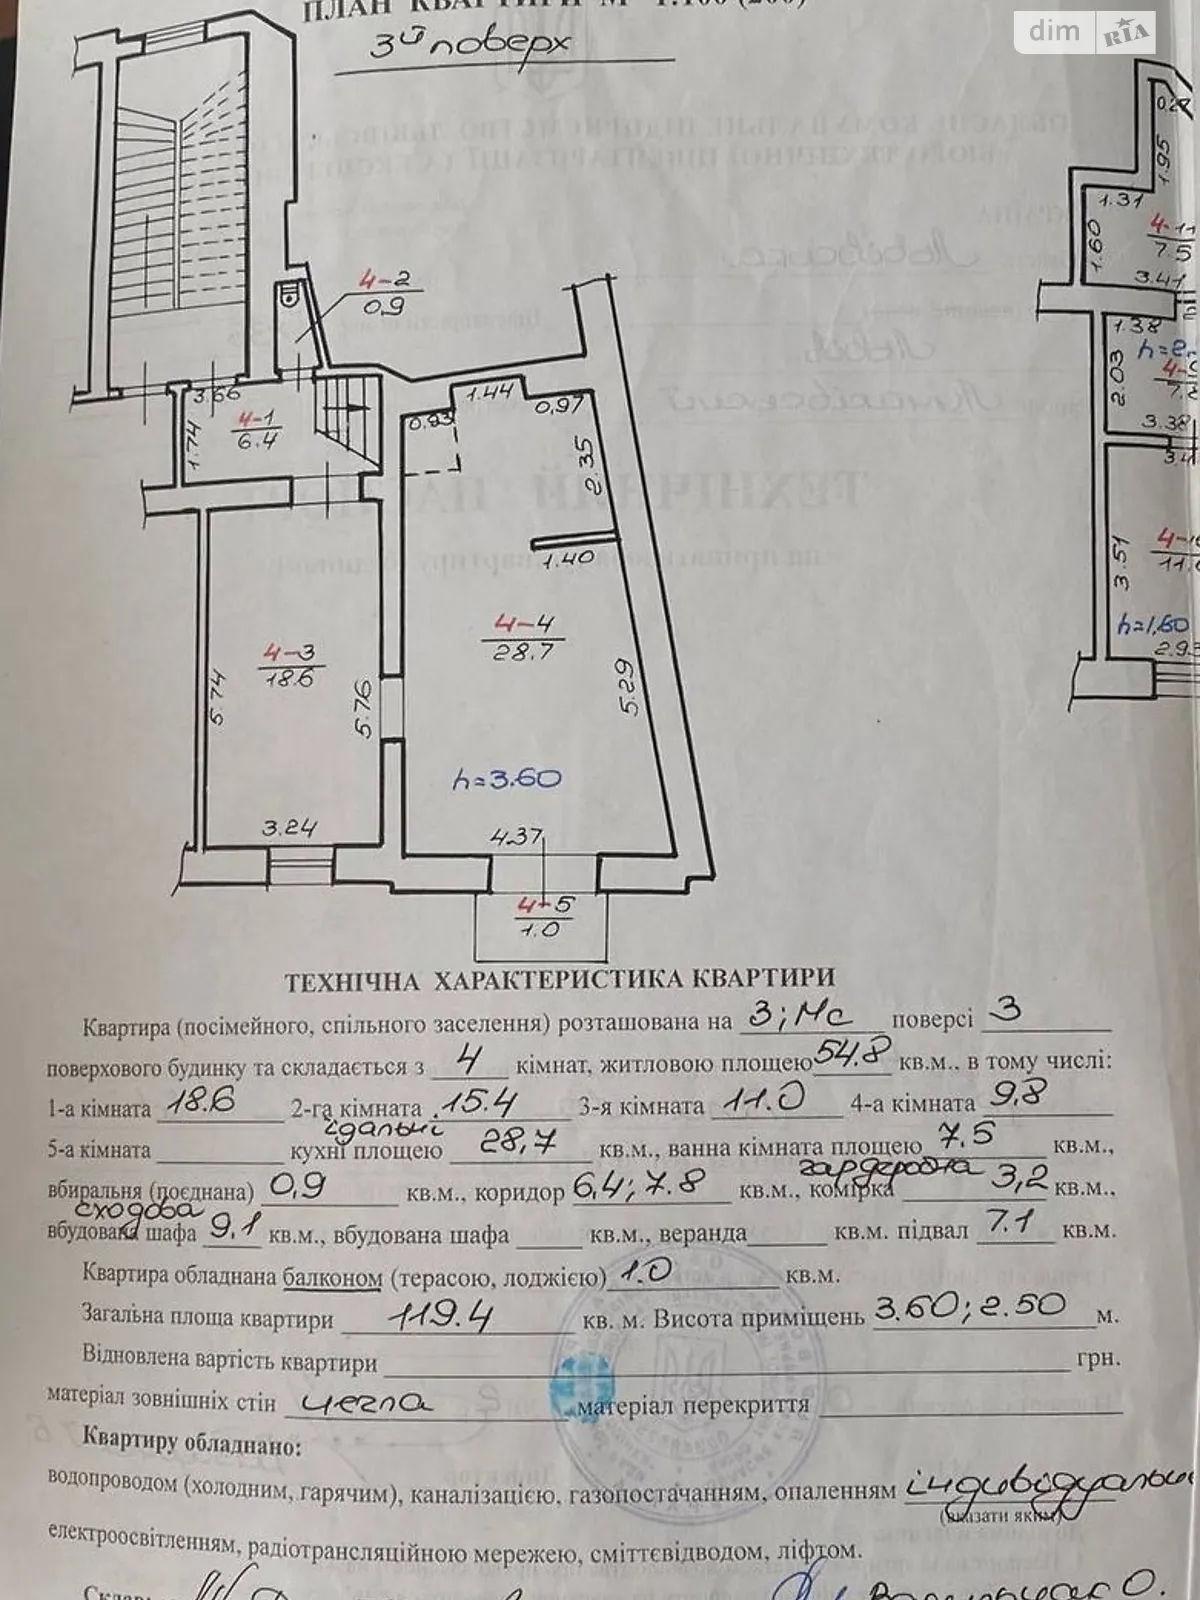 ПЛАН КВАРТИРИ М 1:100 (200)
3й поверх
dim RIA
4-2
0,9
3.66
4-1
6.4
1.74
0.93
1.44
0,97
2.35
1.40
4-3
18.6
5.74
5.76
3.24
4-4
28.7
5.29
h=3.60
4.37
4-5
1.0
0,27
1.95
1.31
1.60
4-11
7.5
3.41
1.38
2.03
3.38
3.51
h=1,60
ТЕХНІЧНА ХАРАКТЕРИСТИКА КВАРТИРИ
Квартира (посімейного, спільного заселення) розташована на 3; Мс поверсі 3
поверхового будинку та складається з 4 кімнат, житловою площею 54.8 кв.м.. в тому числі:
1-а кімната 18.6 2-га кімната 15.4 3-я кімната 11.0 4-а кімната 9,8
їдальні
5-а кімната кухні площею 28,7 кв.м., ванна кімната площею 7.5 кв.м.,
гардеробна
вбиральня (поєднана) 0,9 кв.м., коридор 6,4; 7.8 кв.м., комірка 3,2 кв.м.,
сходова
вбудована шафа 9,1 кв.м., вбудована шафа кв.м., веранда кв.м. підвал 7.1 кв.м.
Квартира обладнана балконом (терасою, лоджією) 1.0 кв.м.
Загальна площа квартири 119.4 кв. м. Висота приміщень 3.60; 2.50 м.
Відновлена вартість квартири грн.
матеріал зовнішніх стін цегла матеріал перекриття
Квартиру обладнано:
водопроводом (холодним, гарячим), каналізацією, газопостачанням, опаленням індивідуальне
(вказати яким)
електроосвітленням, радіотрансляційною мережею, сміттєвідводом, ліфтом.